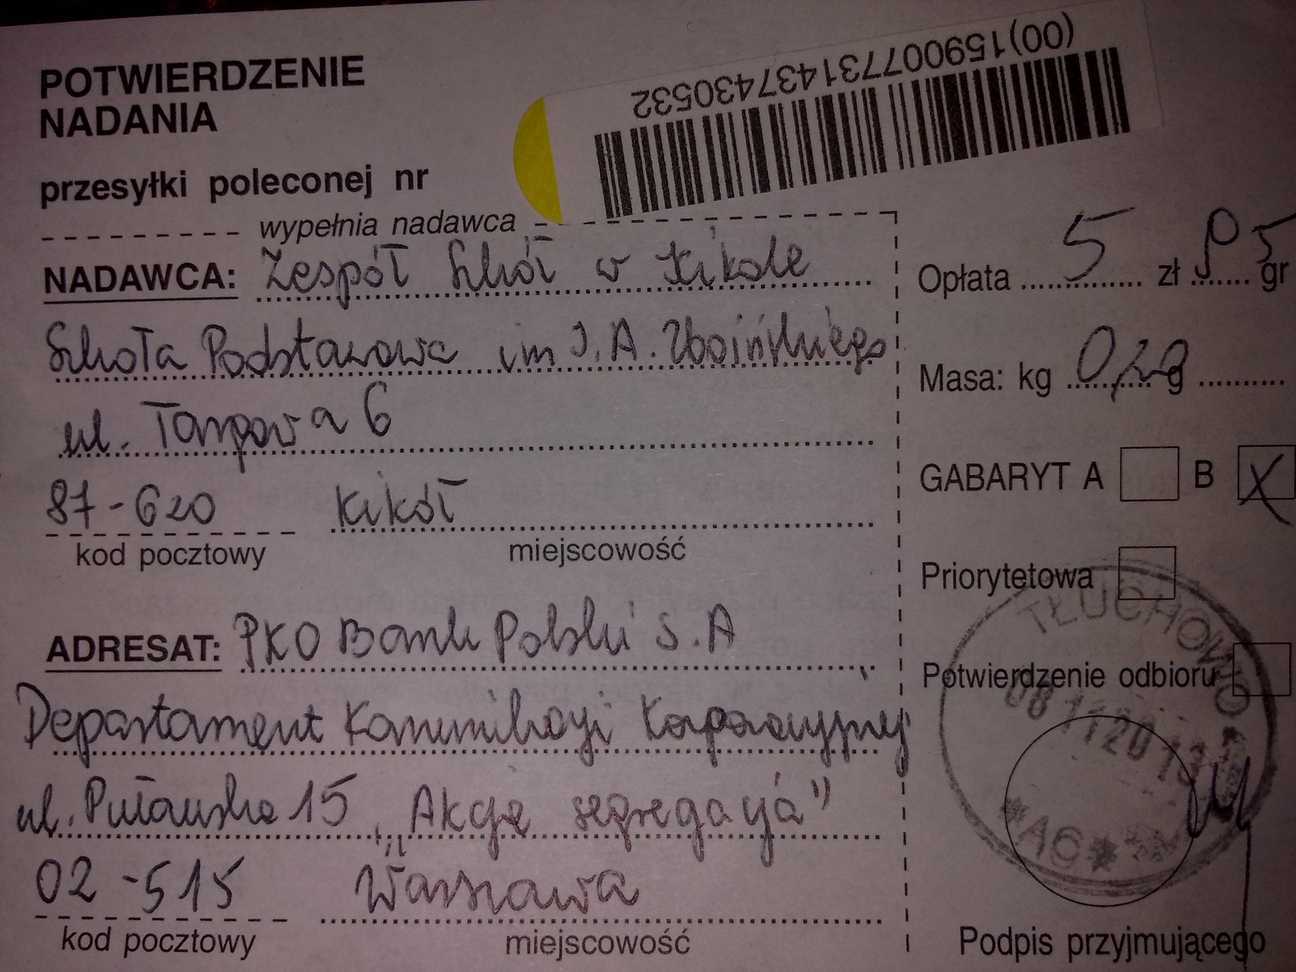 POTWIERDZENIE
NADANIA
(00)159007731437430532
przesyłki poleconej nr
wypełnia nadawca
NADAWCA: Zespół Szkół w Kikole
Szkoła Podstawowa im J. A. Zboińskiego
ul. Targowa 6
87-620 Kikół
kod pocztowy miejscowość
ADRESAT: PKO Bank Polski S.A
Departament Komunikacji Korporacyjnej
ul. Puławska 15 „Akcja segregacja"
02-515 Warszawa
kod pocztowy miejscowość
Opłata 5 zł 95 gr
Masa: kg 0,2 g
GABARYT A B X
Priorytetowa
Potwierdzenie odbioru
TŁUCHOWO
08 11 20 13
*AG*
Podpis przyjmującego